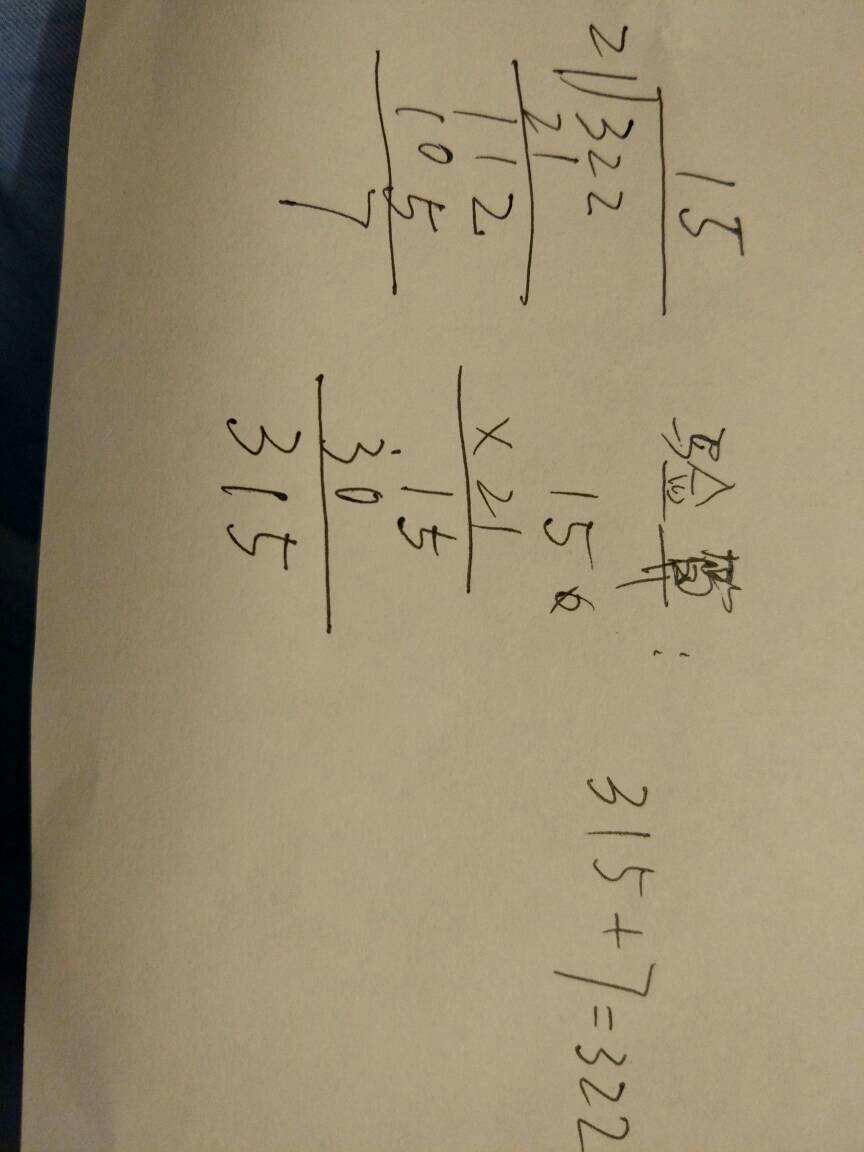 15
21)322
21
112
105
7
验算:
15
×21
15
30
315
315+7=322